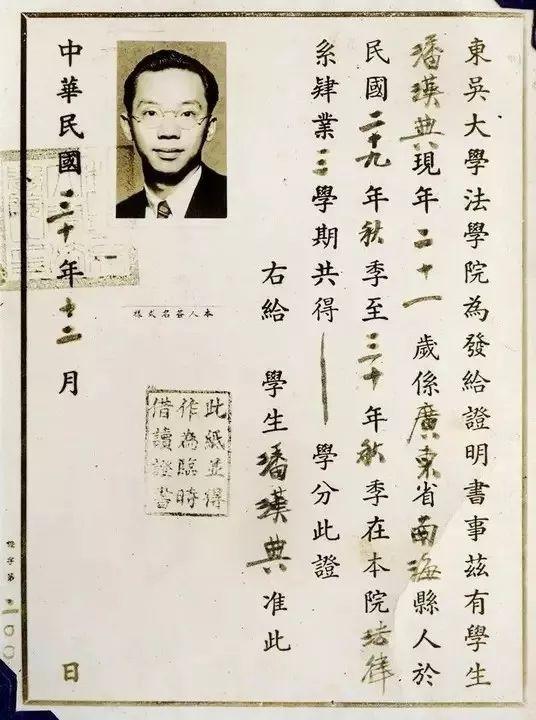 東吳大學法學院為發給證明書事茲有學生
潘漢典現年二十一歲係廣東省南海縣人於
民國二十九年秋季至三十年秋季在本院法律
系肄業三學期共得—學分此證
右給 學生潘漢典准此
本人簽名式樣
此紙並得
作為臨時
借讀證書
中華民國三十年十二月 日
證字第